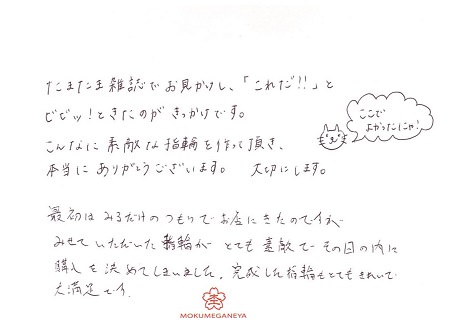 たまたま雑誌でお見かけし、「これだ!!」と
ビビッ!ときたのがきっかけです。
こんなに素敵な指輪を作って頂き、
本当にありがとうございます。 大切にします。
ここで
よかったにゃ!
最初はみるだけのつもりでお店にきたのですが
みせていただいた指輪がとても素敵で その日の内に
購入を決めてしまいました。完成した指輪もとてもきれいで
大満足です。
MOKUMEGANEYA